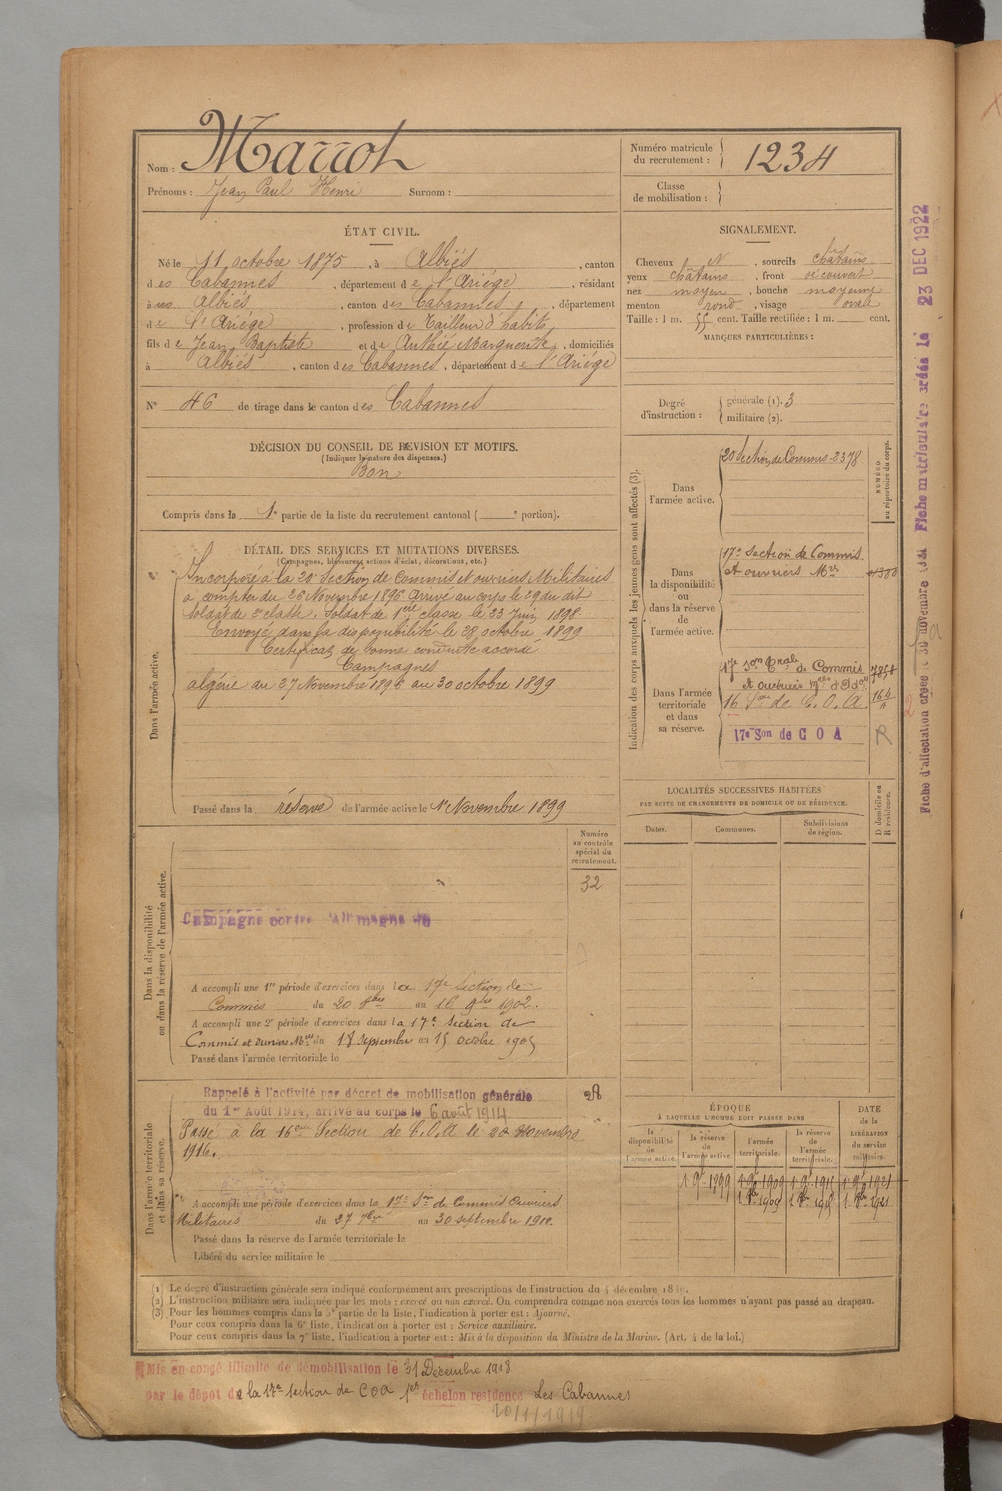 Nom : Marrot
Prénoms : Jean Paul Henri Surnom :
Numéro matricule
du recrutement : 1234
Classe
de mobilisation :
ÉTAT CIVIL.
Né le 11 octobre 1875, à Albiès, canton
des Cabannes, département de l'Ariège, résidant
à Albiès, canton des Cabannes, département
de l'Ariège, profession de Tailleur d'habits
fils de Jean Baptiste et de Authié Marguerite, domiciliés
à Albiès, canton des Cabannes, département de l'Ariège
N° 46 de tirage dans le canton des Cabannes
DÉCISION DU CONSEIL DE REVISION ET MOTIFS.
(Indiquer la nature des dispenses.)
Bon
Compris dans la 1e partie de la liste du recrutement cantonal ( e portion).
SIGNALEMENT.
Cheveux N, sourcils châtains
yeux châtains, front découvert
nez moyen, bouche moyenne
menton rond, visage ovale
Taille : 1 m. 55 cent. Taille rectifiée : 1 m. cent.
MARQUES PARTICULIÈRES :
Degré
d'instruction :
générale (1). 3
militaire (2).
DÉTAIL DES SERVICES ET MUTATIONS DIVERSES.
(Campagnes, blessures, actions d'éclat, décorations, etc.)
Dans l'armée active.
Incorporé à la 20e Section de Commis et ouvriers Militaires
à compter du 26 Novembre 1896 arrivé au corps le 29 du dit
soldat de 2e classe. Soldat de 1ère classe le 23 Juin 1898.
Envoyé dans la disponibilité le 28 octobre 1899
Certificat de bonne conduite accordé
Campagnes
algérie du 27 Novembre 1896 au 30 octobre 1899
Passé dans la réserve de l'armée active le 1er Novembre 1899
Indication des corps auxquels les jeunes gens sont affectés (3).
NUMÉRO
au répertoire du corps.
Dans
l'armée active.
20 Section de Commis - 2378
Dans
la disponibilité
ou
dans la réserve
de
l'armée active.
17e Section de Commis
et ouvriers Mres
Dans l'armée
territoriale
et dans
sa réserve.
17e Son Trale de Commis
et ouvriers
16 Son de C. O. A. 164
17e Son de C O A R
LOCALITÉS SUCCESSIVES HABITÉES
PAR SUITE DE CHANGEMENTS DE DOMICILE OU DE RÉSIDENCE.
Dates. Communes. Subdivisions
de région.
D domicile ou
R résidence.
Dans la disponibilité
ou dans la réserve de l'armée active.
Numéro
au contrôle
spécial du
recrutement.
32
Campagne contre l'Allemagne du
A accompli une 1re période d'exercices dans la 17e Section de
Commis du 20 8bre au 16 9bre 1902.
A accompli une 2e période d'exercices dans la 17e Section de
Commis et ouvriers Mres du 18 Septembre au 15 octobre 1905
Passé dans l'armée territoriale le
Dans l'armée territoriale
et dans sa réserve.
Rappelé à l'activité par décret de mobilisation générale
du 1er Août 1914, arrivé au corps le 6 août 1914
Passé à la 16eme Section de C.O.A le 20 Novembre
1916.
A accompli une période d'exercices dans la 17e Son de Commis Ouvriers
Militaires du 27 7bre au 30 septembre 1910.
Passé dans la réserve de l'armée territoriale le
Libéré du service militaire le
ÉPOQUE
À LAQUELLE L'HOMME DOIT PASSER DANS
la
disponibilité
de
l'armée active.
la réserve
de
l'armée active.
l'armée
territoriale.
la réserve
de
l'armée
territoriale.
DATE
de la
LIBÉRATION
du service
militaire.
1 9bre 1899 1 9bre 1909 1 9bre 1915 1 9bre 1921
(1) Le degré d'instruction générale sera indiqué conformément aux prescriptions de l'instruction du 4 décembre 1889.
(2) L'instruction militaire sera indiquée par les mots : exercé ou non exercé. On comprendra comme non exercés tous les hommes n'ayant pas passé au drapeau.
(3) Pour les hommes compris dans la 5e partie de la liste, l'indication à porter est : Ajourné.
Pour ceux compris dans la 6e liste, l'indication à porter est : Service auxiliaire.
Pour ceux compris dans la 7e liste, l'indication à porter est : Mis à la disposition du Ministre de la Marine. (Art. 4 de la loi.)
Mis en congé illimité de démobilisation le 31 Décembre 1918
par le dépôt de la 17e section de COA 1er échelon résidence Les Cabannes
10/1/1919
Fiche d'affectation créée le 30 novembre Fiche matriculaire créée le 23 DEC 1922